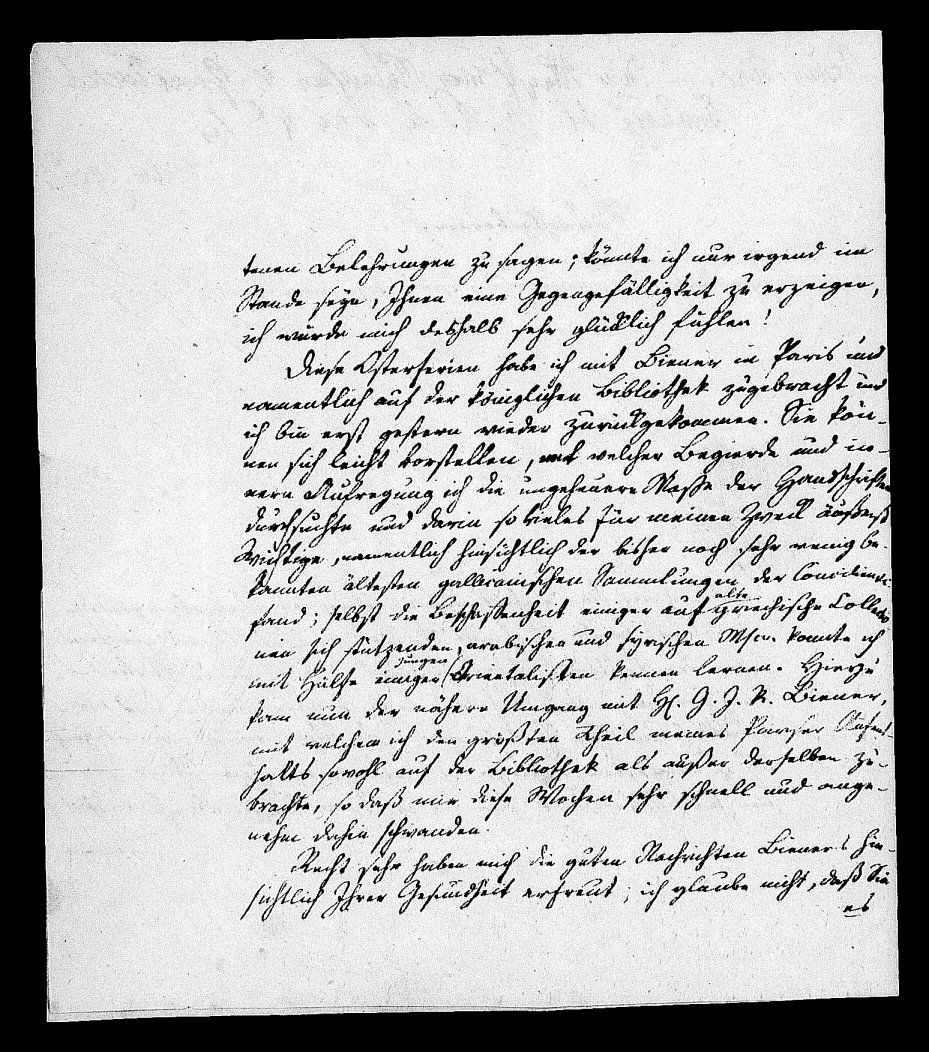 tenen Belehrungen zu sagen; könnte ich nur irgend im
Stande seyn, Ihnen eine Gegengefälligkeit zu erzeigen,
ich würde mich deshalb sehr glücklich fühlen!
Diese Osterferien habe ich mit Biener in Paris und
namentlich auf der königlichen Bibliothek zugebracht und
ich bin erst gestern wieder zurückgekommen. Sie kön-
nen sich leicht vorstellen, mit welcher Begierde und in-
nern Aufregung ich die ungeheuere Maße der Handschriften
durchsuchte und darin so vieles für meinen Zweck äußerst
Wichtige, namentlich hinsichtlich der bisher noch sehr wenig be-
kannten ältesten gallicanischen Sammlungen der Concilien
fand; selbst die Beschaffenheit einiger auf alte griechische Collectio
nen sich stützenden, arabischen und syrischen Mscr. konnte ich
mit Hülfe einiger jungen Orientalisten kennen lernen. Hierzu
kam nun der nähere Umgang mit H. G. J. R. Biener,
mit welchem ich den größten Theil meines Pariser Aufent-
halts sowohl auf der Bibliothek als außer derselben zu-
brachte, so daß mir diese Wochen sehr schnell und ange-
nehm dahin schwanden.
Recht sehr haben mich die guten Nachrichten Bieners hin-
sichtlich Ihrer Gesundheit erfreut; ich glaube nicht, daß Sie
es